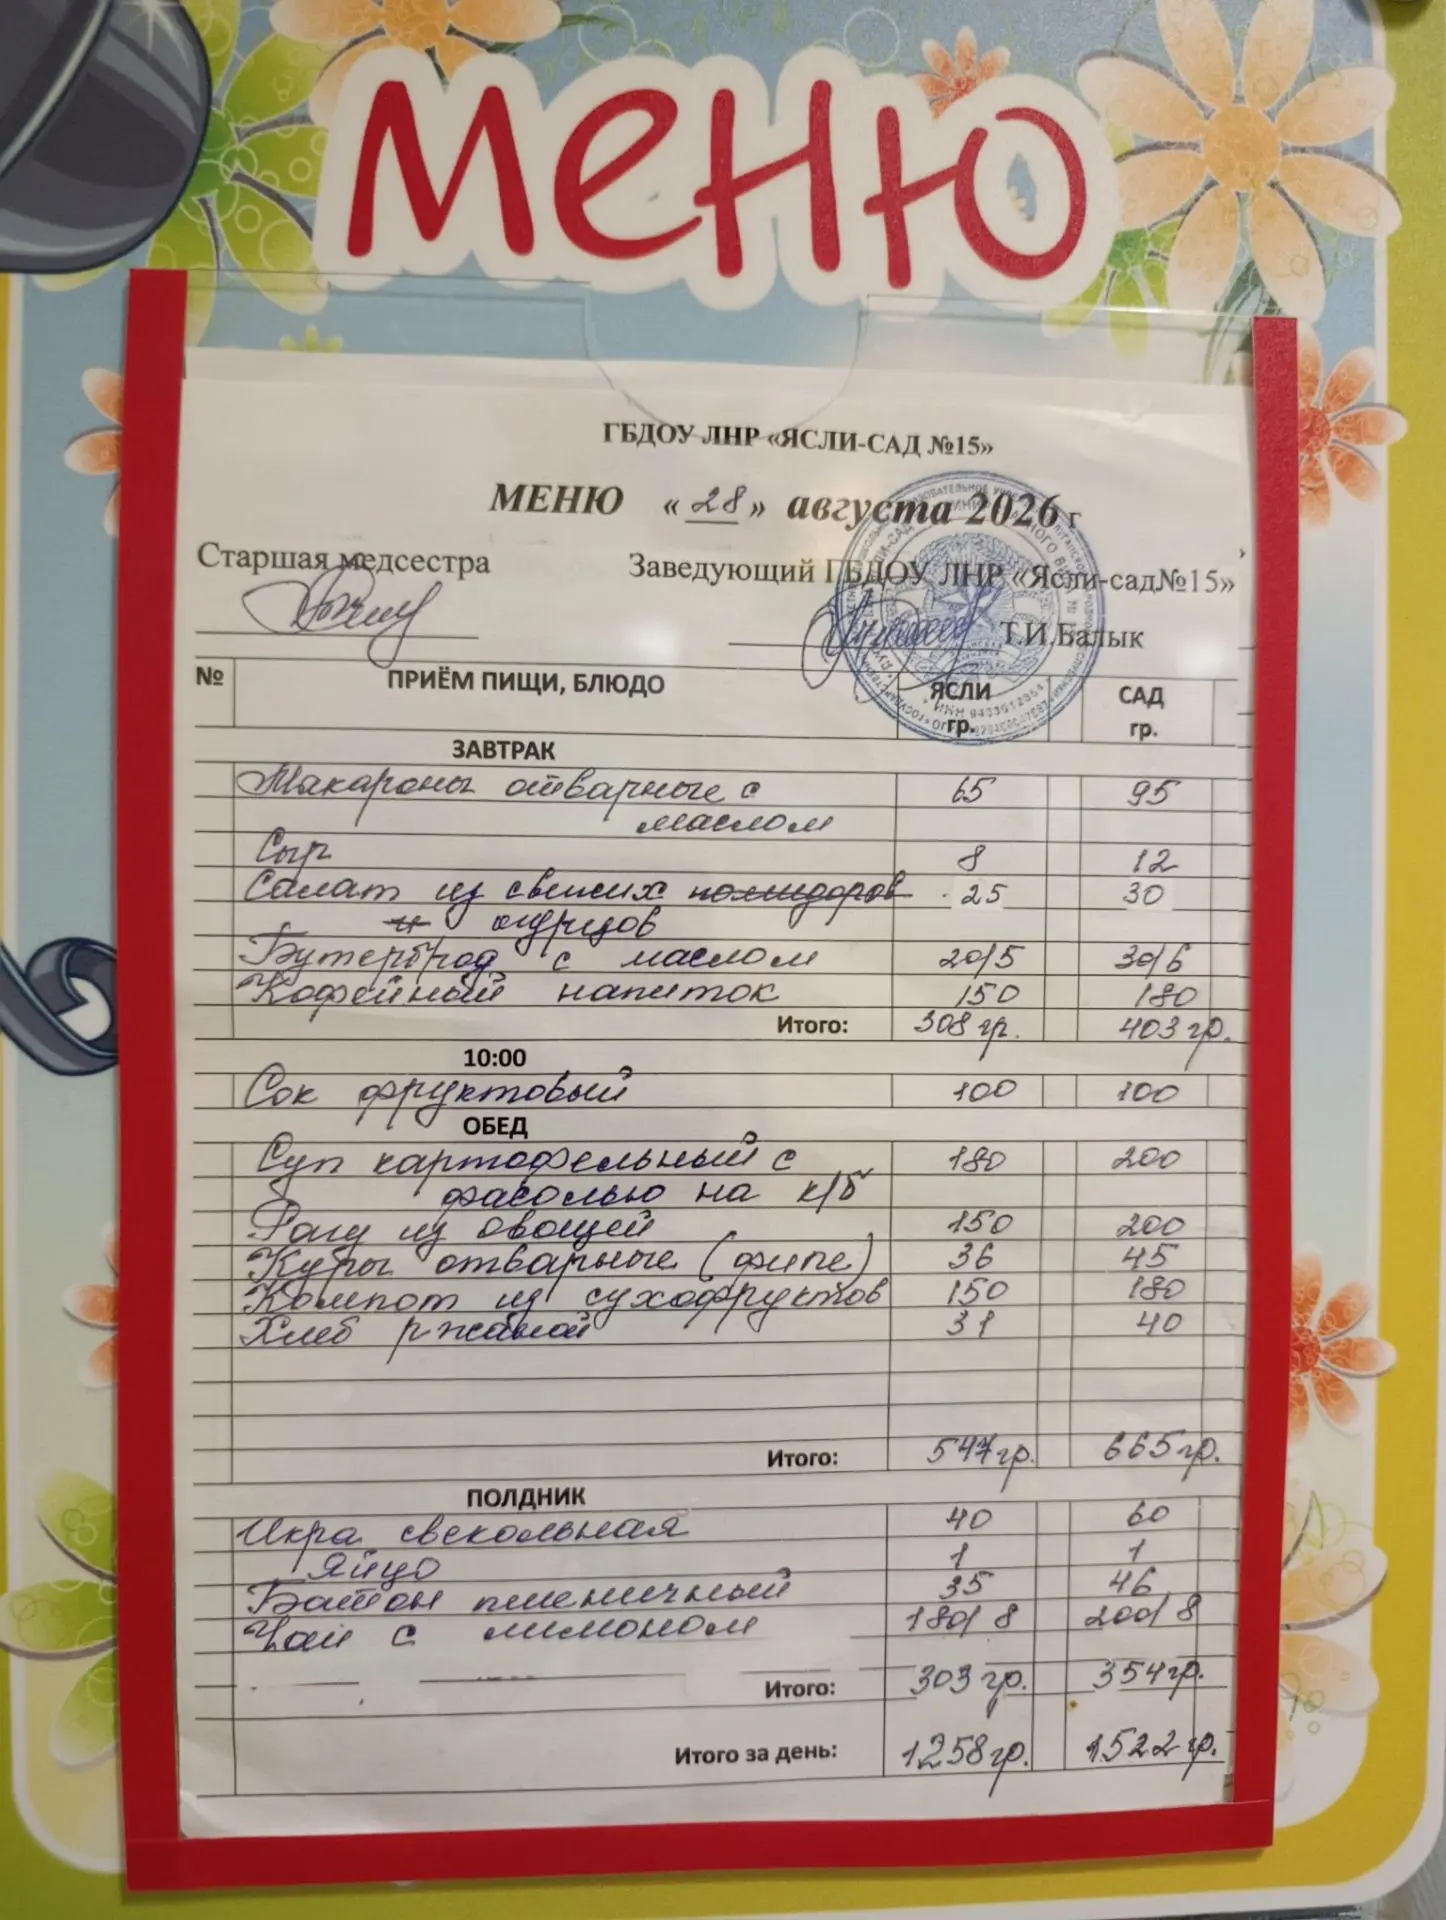 Меню
ГБДОУ ЛНР «ЯСЛИ-САД №15»
МЕНЮ «28» августа 2026 г
Старшая медсестра Заведующий ГБДОУ ЛНР «Ясли-сад№15»
Т.И.Балык
№ ПРИЁМ ПИЩИ, БЛЮДО ЯСЛИ гр. САД гр.
ЗАВТРАК
Макароны отварные с 65 95
маслом
Сыр 8 12
Салат из свежих помидоров 25 30
и огурцов
Бутерброд с маслом 20/5 30/6
Кофейный напиток 150 180
Итого: 308 гр. 403 гр.
10:00
Сок фруктовый 100 100
ОБЕД
Суп картофельный с 180 200
фасолью на к/б
Рагу из овощей 150 200
Куры отварные (филе) 36 45
Компот из сухофруктов 150 180
Хлеб ржаной 31 40
Итого: 547 гр. 665 гр.
ПОЛДНИК
Икра свекольная 40 60
Яйцо 1 1
Батон пшеничный 35 46
Чай с лимоном 180/8 200/8
Итого: 303 гр. 354 гр.
Итого за день: 1258 гр. 1522 гр.